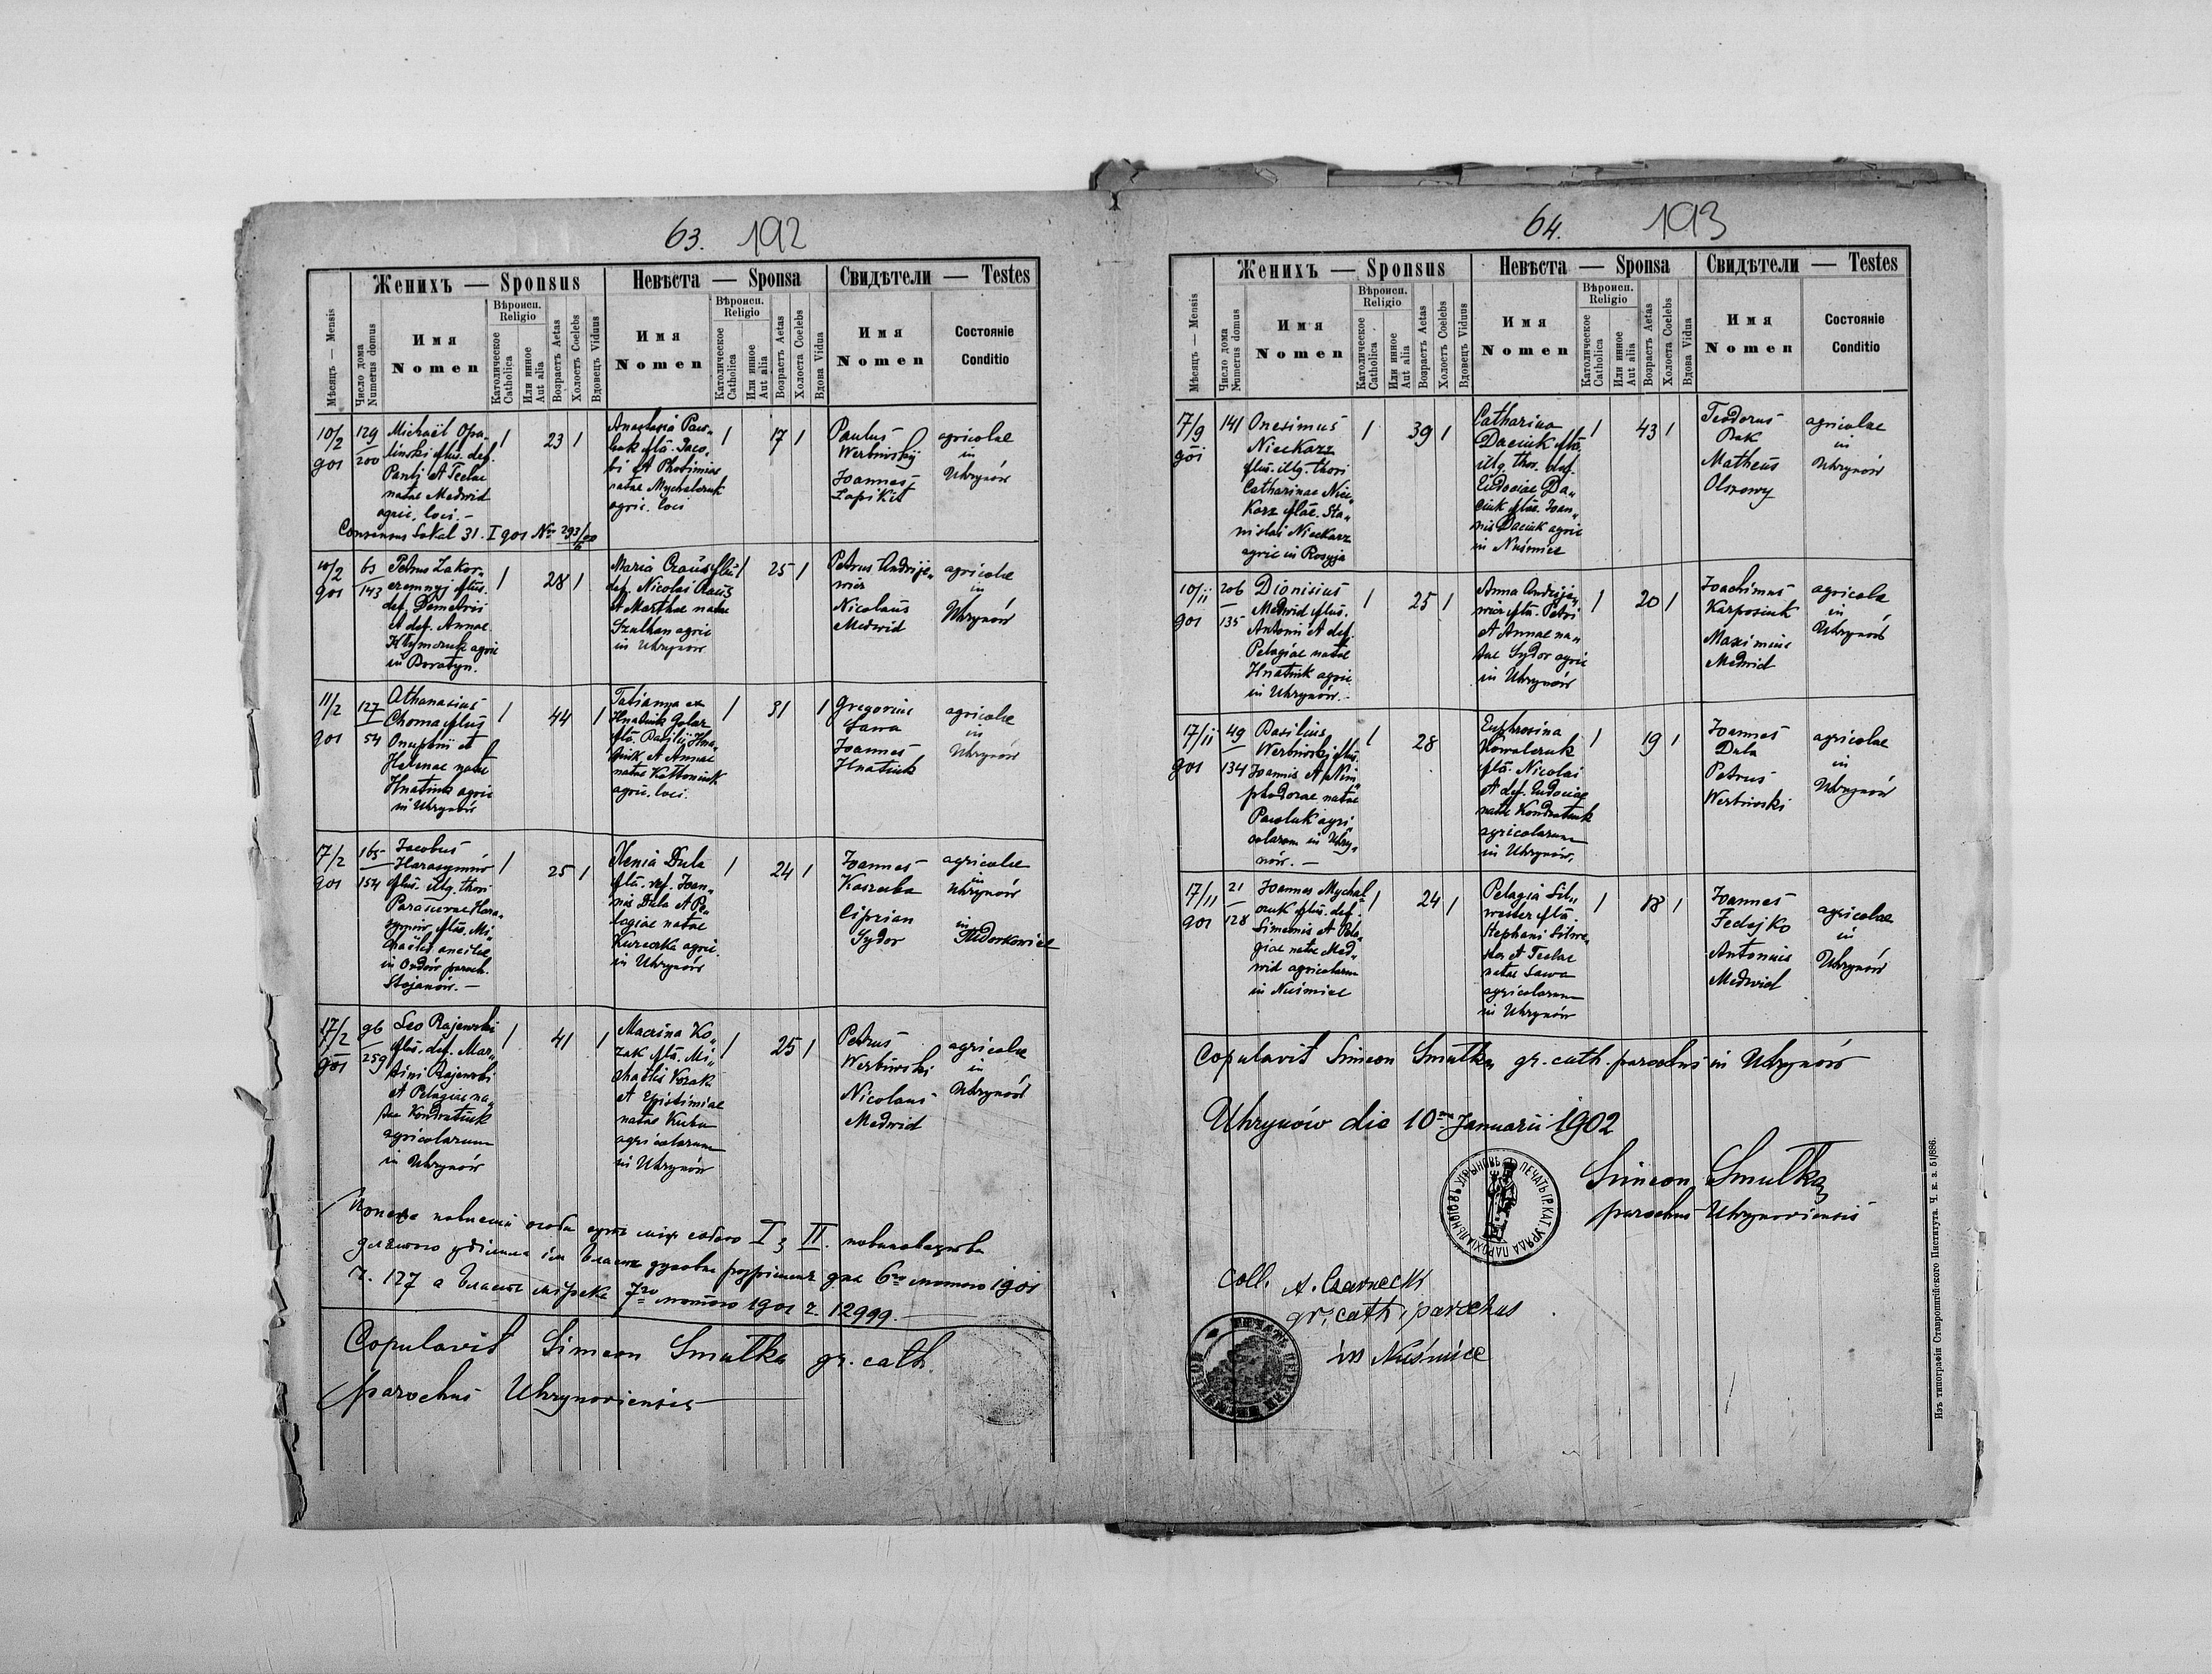 63. 192
Женихъ — Sponsus
Невѣста — Sponsa
Свидѣтели — Testes
Мѣсяцъ — Mensis
Число дома
Numerus domus
Имя
Nomen
Вѣроисп.
Religio
Католическое
Catholica
Или инное
Aut alia
Возрастъ Aetas
Холостъ Coelebs
Вдовецъ Viduus
Имя
Nomen
Вѣроисп.
Religio
Католическое
Catholica
Или инное
Aut alia
Возрастъ Aetas
Холоста Coelebs
Вдова Vidua
Имя
Nomen
Состояніе
Conditio
10/2
901
129
200
Michaël Opa„
linski flius. def.
Pauli et Teclae
natae Medwid
agric. loci. –
1 23 1
Anastasia Paw„
luk flia. Jaco„
bi et Photimiae
natae Mychalczuk
agric. loci
1 17 1
Paulus
Werbiwskij
Joannes
agricolae
in
Uhrynów
Consensus Sokal 31. I 901 No 293/00
10/2
901
63
143
Petrus Zakor„
czemnyj flius.
def. Demetrii
et def. Annae
Klymczuk agric
in Boratyn.
1 28 1
Maria flia
def. Nicolai
et Marthae natae
Szulhan agric
in Uhrynów
1 25 1
Petrus Andrije„
wicz
Nicolaus
Medwid
agricolae
in
Uhrynów
11/2
901
127
54
Athanasius
Choma flius
Onuphrii et
Helenae natae
Hnatiuk agric
in Uhrynów
1 44 1
Tatianna ex
Hnatiuk Golar
flia. Basilii Hna„
tiuk et Annae
natae Kottoniuk
agric. loci.
1 31 1
Gregorius
Sawa
Joannes
Hnatiuk
agricolae
in
Uhrynów
17/2
901
165
154
Jacobus
Harasymów
flius. illg. thori
Parascevae Hara„
symów flius. Mi„
chaëlis ancillae
in Ordów paroch.
Stojanów. –
1 25 1
Xenia Dula
flia. def. Joan„
nis Dula et Pe„
lagiae natae
Kureczka agric.
in Uhrynów
1 24 1
Joannes
Kaszuba
Ciprian
Sydor
agricolae
in
Uhrynów
in
17/2
901
96
259
Leo Rajewski
flius. def. Mar„
tini Rajewski
et Pelagiae na„
tae Kondratiuk
agricolarum
in Uhrynów
1 41 1
Macrina Ko„
zak flia. Mi„
chaëlis Kozak
et Epistimiae
natae Kuku
agricolarum
in Uhrynów
1 25 1
Petrus
Werbiwski
Nicolaus
Medwid
agricolae
in
Uhrynów
особи суть між собою I з II.
для того уділила їм Власть духовна дня 6го лютого 1901
ч. 127 а Власть мірска 7го лютого 1901 ч. 12999.
Copulavit Simeon Smulka gr. cath.
parochus Uhrynoviensis
64. 193
Женихъ — Sponsus
Невѣста — Sponsa
Свидѣтели — Testes
Мѣсяцъ — Mensis
Число дома
Numerus domus
Имя
Nomen
Вѣроисп.
Religio
Католическое
Catholica
Или инное
Aut alia
Возрастъ Aetas
Холостъ Coelebs
Вдовецъ Viduus
Имя
Nomen
Вѣроисп.
Religio
Католическое
Catholica
Или инное
Aut alia
Возрастъ Aetas
Холоста Coelebs
Вдова Vidua
Имя
Nomen
Состояніе
Conditio
17/9
901
141
Onesimus
Nieckarz
flius. illg. thori
Catharinae Niec„
karz fliae. Sta„
nislai Nieckarz
agric in Rosyja
1 39 1
Catharina
Daciuk flia.
illg. thor. def.
Eudociae Da„
ciuk fliae. Joan„
nis Daciuk agric
in Nuśmice
1 43 1
Teodorus
Bak
Matheus
Olszowy
agricolae
in
Uhrynów
10/11
901
206
135
Dionisius
Medwid flius.
Antonii et def.
Pelagiae natae
Hnatiuk agric.
in Uhrynów. –
1 25 1
Anna Andrije„
wicz flia. Petri
et Annae na„
tae Sydor agric
in Uhrynów
1 20 1
Joachimus
Karpociuk
Maximus
Medwid
agricolae
in
Uhrynów
17/11
901
49
134
Basilius
Werbiwskij flius.
Joannis et Nim„
phodorae natae
Pawluk agri„
colarum in Uhry„
nów. –
1 28
Euphrosina
Kowalczuk
flia. Nicolai
et def. Eudociae
natae Kondratiuk
agricolarum
in Uhrynów.
1 19 1
Joannes
Dula
Petrus
Werbiwski
agricolae
in
Uhrynów
17/11
901
21
128
Joannes Mychal„
czuk flius. def.
Simeonis et Pela„
giae natae Med„
wid agricolarum
in Nuśmice
1 24 1
Pelagia Sil„
wester flia.
Stephani Silwe„
ster et Teclae
natae Sawa
agricolarum
in Uhrynów
1 18 1
Joannes
Fedejko
Antonius
Medwid
agricolae
in
Uhrynów
Copulavit Simeon Smulka gr. cath. parochus in Uhrynów
Uhrynów die 10ma Januarii 1902
Simeon Smulka
parochus Uhrynoviensis
ПЕЧАТЬ ГР. КАТ. УРЯДА ПАРОХІАЛЬНОГО ВЪ УГРЫНОВѢ
Coll. A. Czarnecki
gr. cath. parochus
in Nuśmice
Изъ типографіи Ставропигійского Института. Ч. к. з. 51/886.